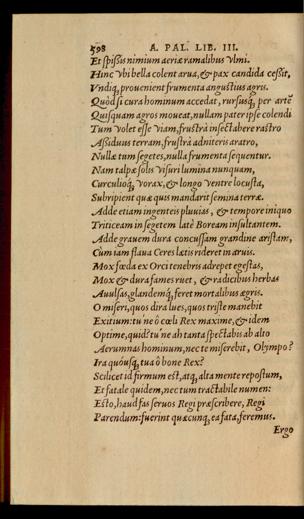 598 A. PAL. LIB. III.
Et spissis nimium aeriæ ramalibus Vlmi.
Hinc vbi bella colent arua, & pax candida cessit,
Vndiq, prouenient frumenta angustius agris.
Quòd si cura hominum accedat, rursusq̃, per artẽ
Quisquam agros moueat, nullam pater ipse colendi
Tum volet esse viam, frustrà insectabere rastro
Assiduus terram, frustrà adniteris aratro,
Nullæ tum segetes, nulla frumenta sequentur.
Nam talpæ solis visuri lumina nunquam,
Curculioq̃, vorax, & longo ventre locusta,
Subripient quæ quis mandarit semina terræ.
Adde etiam ingenteis pluuias, & tempore iniquo
Triticeam in segetem latè Boream insultantem.
Adde grauem dura concussam grandine aristam,
Cùm iam flaua Ceres lætis rideret in aruis.
Mox fœda ex Orci tenebris adrepet egestas,
Mox & dura fames ruet, & radicibus herbas
Auulsas, glandemq̃, feret mortalibus ægris.
O miseri, quos dira lues, quos triste manebit
Exitium: tu ne ô cœli Rex maxime, & idem
Optime, quid? tu ne ah tanta spectabis ab alto
Aerumnas hominum, nec te miserebit, Olympo?
Ira quousq̃, tua ô bone Rex?
Scilicet id firmum est, atq̃, alta mente repostum,
Et fatale quidem, nec tum tractabile numen:
Esto, haud fas seruos Regi præscribere, Regi
Parendum: fuerint quæcunq̃, ea fata, feremus.
Ergo